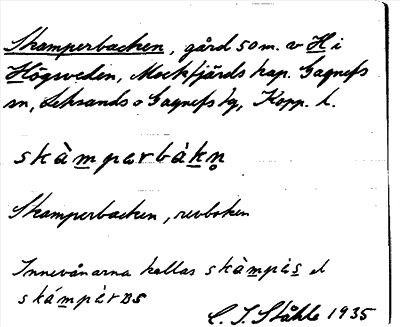 Skamperbacken, gård 50 m. v H i
Högsveden, Mockfjärds kap. Gagnefs
sn, Leksands o Gagnefs tg, Kopp. l.
skàmparbàkn̥
Skamperbacken, revboken
Innevånarna kallas skàmpès el
skàmpèrs
C. I. Ståhle 1935